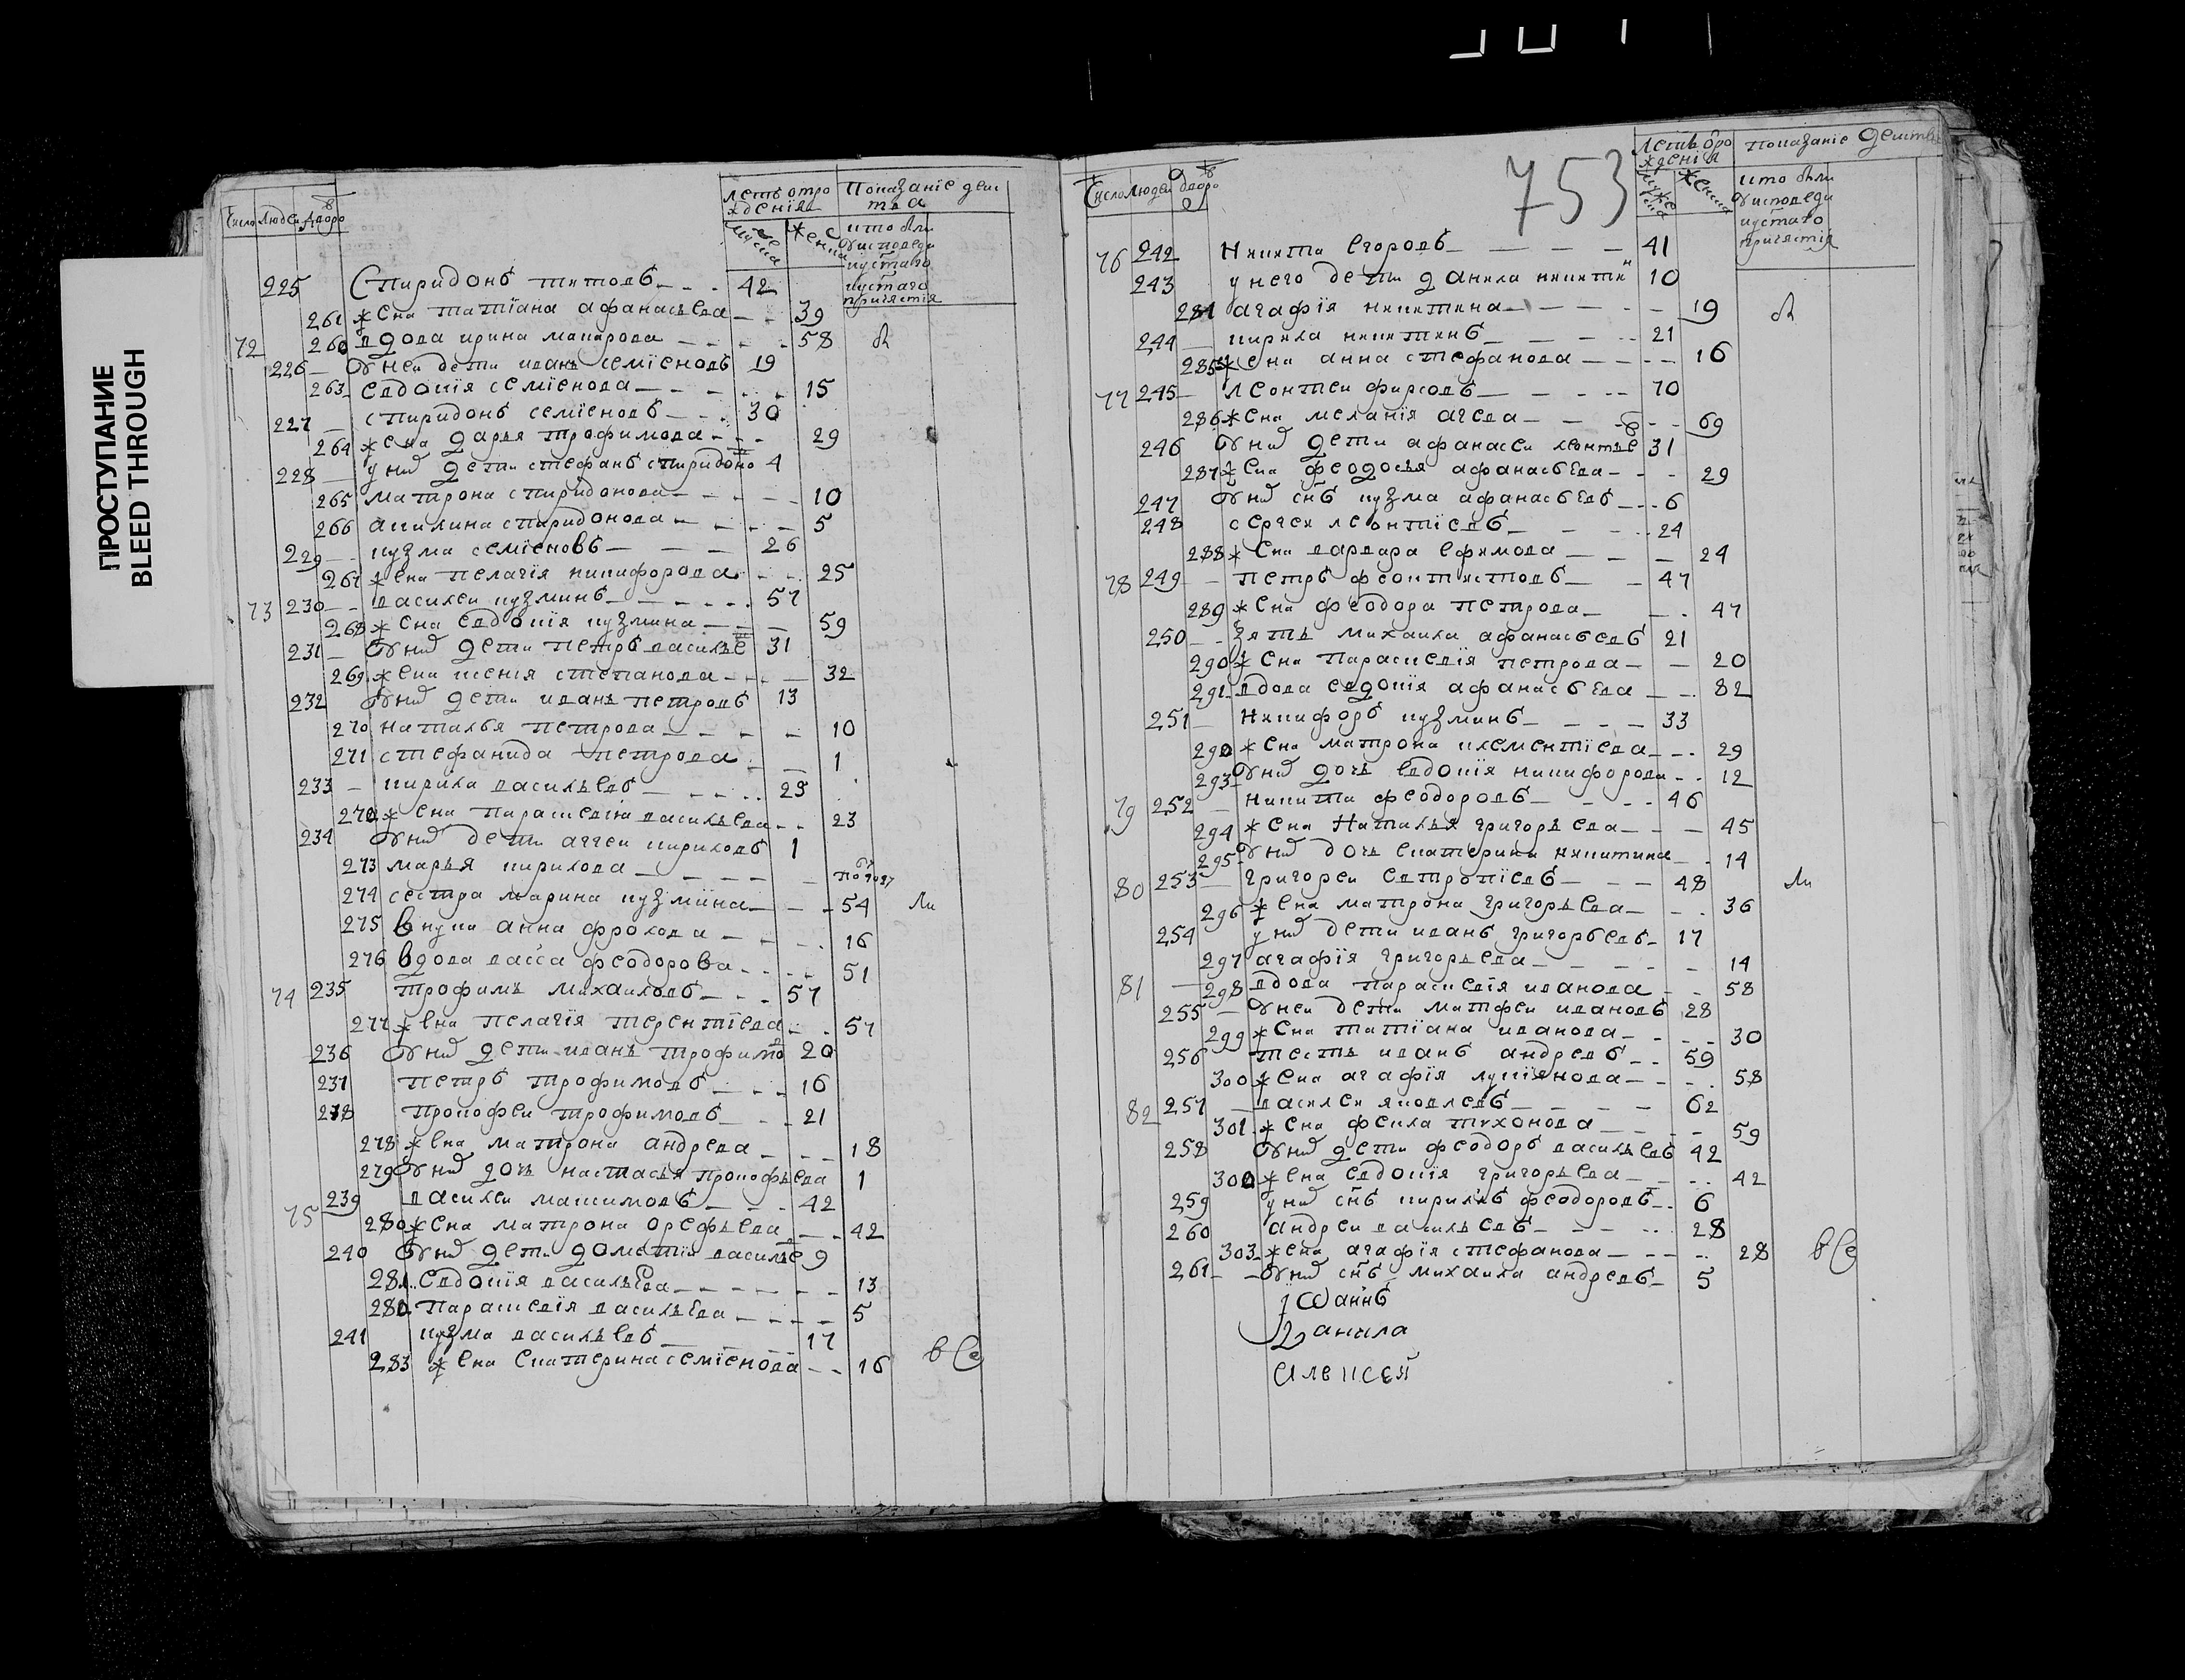 ПРОСТУПАНИЕ
BLEED THROUGH
Число людей Дворо в
летъ отро ждения
Показание деи тва
мужеска
женска
кто были
у исповеди
и у стаго
и у стаго
причастія
225 Спиридонъ титовъ 42
261 жена татіана афанасьева 39
72 260 вдова ирина макарова 58 бы
226 У неи дети иванъ семіеновъ 19
263 евдокія семіенова 15
227 спиридонъ семіеновъ 30
264 жена дарья трофимова 29
228 у них дети стефанъ спиридоно 4
265 матрона спиридонова 10
266 акилина спиридонова 5
229 кузма семіеновъ 26
267 жена пелагія никифорова 25
73 230 василеи кузминъ 57
268 жена евдокія кузмина 59
231 У них дети петръ василье 31
269 жена ксенія степанова 32
232 У них дети иванъ петровъ 13
270 наталья петрова 10
271 стефанида петрова 1
233 кирила васильевъ 23
272 жена параскевіа васильева 23
234 У них дети аггеи кириловъ 1
273 марья кирилова
274 сестра марина кузмина 54 ли
275 внука анна фролова 16
276 вдова васса феодорова 51
74 235 трофимъ михаиловъ 57
277 жена пелагія терентіева 57
236 У них дети иванъ трофимо 20
237 петръ трофимовъ 16
238 прокофеи трофимовъ 21
278 жена матрона андреева 18
279 У них дочь настасья прокофьева 1
75 239 василеи максимовъ 42
280 жена матрона орефьева 42
240 У них дети дометіи василье 9
281 Евдокія васильева 13
282 Параскевія васильева 5
241 кузма васильевъ 17
283 жена екатерина семіенова 16 все
753
Число людей дворо в
летъ о ро ждения
мужеска
женска
показание деиства
кто были
у исповеди
и у стаго
причастія
76 242 Никита егоровъ 41
243 у него дети данила никитин 10
284 агафія никитина 19 бы
244 кирила никитинъ 21
285 жена анна стефанова 16
77 245 леонтеи фирсовъ 70
286 жена меланія агева 69
246 У них дети афанасеи леонтье 31
287 жена феодосья афанасьева 29
247 У них снъ кузма афанасьевъ 6
248 сергеи леонтіевъ 24
288 жена варвара ефимова 24
78 249 петръ феоктистовъ 47
289 жена феодора петрова 47
250 Зять михаила афанасьевъ 21
290 жена параскевія петрова 20
291 вдова евдокія афанасьева 82
251 Никифоръ кузминъ 33
292 жена матрона климентіева 29
293 У них дочь евдокія никифорова 12
79 252 Никита феодоровъ 46
294 жена Наталья григорьева 45
295 У них дочь екатерина никитина 14
80 253 григореи евтропіевъ 48 ли
296 жена матрона григорьева 36
254 у них дети иванъ григорьевъ 17
297 агафія григорьева 14
81 298 вдова параскевія иванова 58
255 У неи дети матфеи ивановъ 28
299 жена татіана иванова 30
256 тесть иванъ андреевъ 59
300 жена агафія лукіянова 58
82 257 василеи яковлевъ 62
301 жена фекла тихонова 59
258 У них дети феодоръ васильевъ 42
302 жена евдокія григорьева 42
259 у них снъ кирилъ феодоровъ 6
260 андреи васильевъ 28
303 жена агафія стефанова 28 все
261 У них снъ михаила андреевъ 5
іѡаннъ
Данила
Алексей